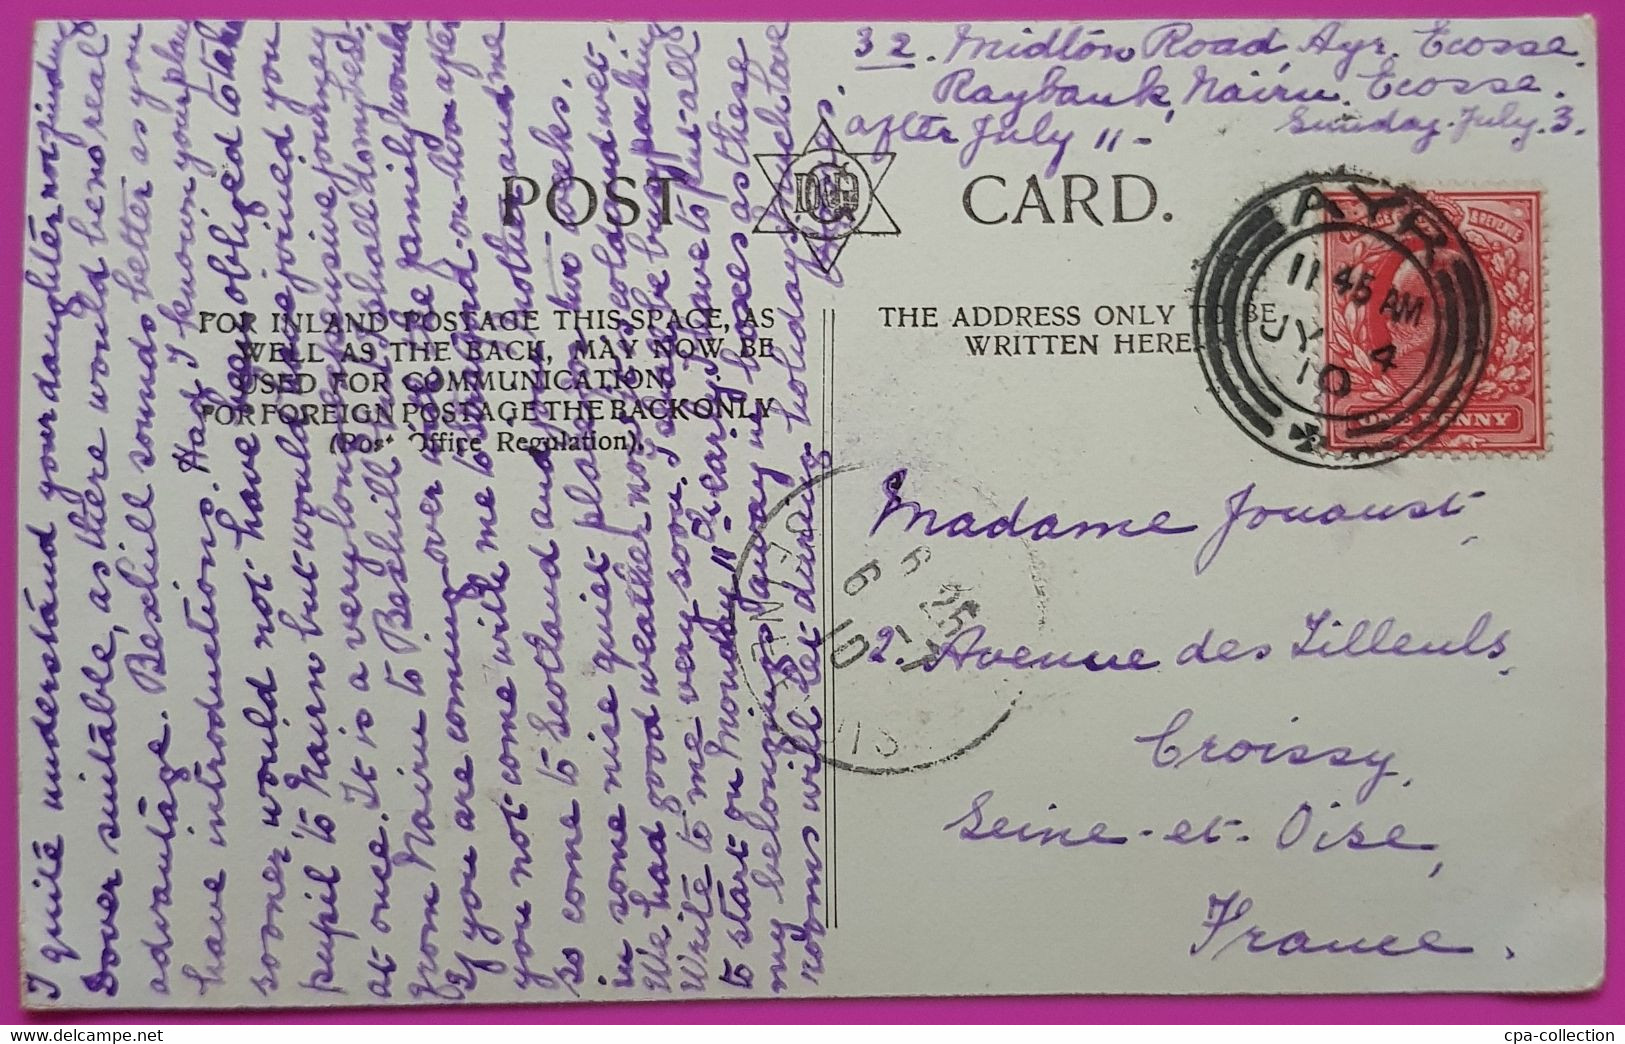 32. Midton Road, Ayr. Ecosse.
Raybank, Nairn. Ecosse.
after July 11 -
Sunday. July. 3.
POST CARD.
AYR
11 45 AM
JY 4
10
ONE PENNY
FOR INLAND POSTAGE THIS SPACE, AS
WELL AS THE BACK, MAY NOW BE
USED FOR COMMUNICATION.
FOR FOREIGN POSTAGE THE BACK ONLY
(Post Office Regulation).
THE ADDRESS ONLY TO BE
WRITTEN HERE.
Madame Jouaust,
2. Avenue des Tilleuls,
Croissy,
Seine-et-Oise,
France.
I quite understand your daughter not finding
Dover suitable, as there would be no real
advantage. Bexhill sounds better as you
have introductions. Had I known your plan
sooner would not have been obliged to take
pupil to Nairn but would have joined you
at once. It is a very long expensive journey
from Nairn to Bexhill and shall dompted.
If you are coming over the family would
you not come with me to board on 1st Nov after
so come to Scotland and your mother and me
in some nice quiet place two weeks.
We had good weather now its cold and wet.
Write to me very soon. I shall be busy packing
to start on Monday 11th early. I have to put all
my belongings away in boxes as these
rooms will be let during holidays such have
always.
6 25
6 - 7
10
SEINE ET OISE
cpa-collection